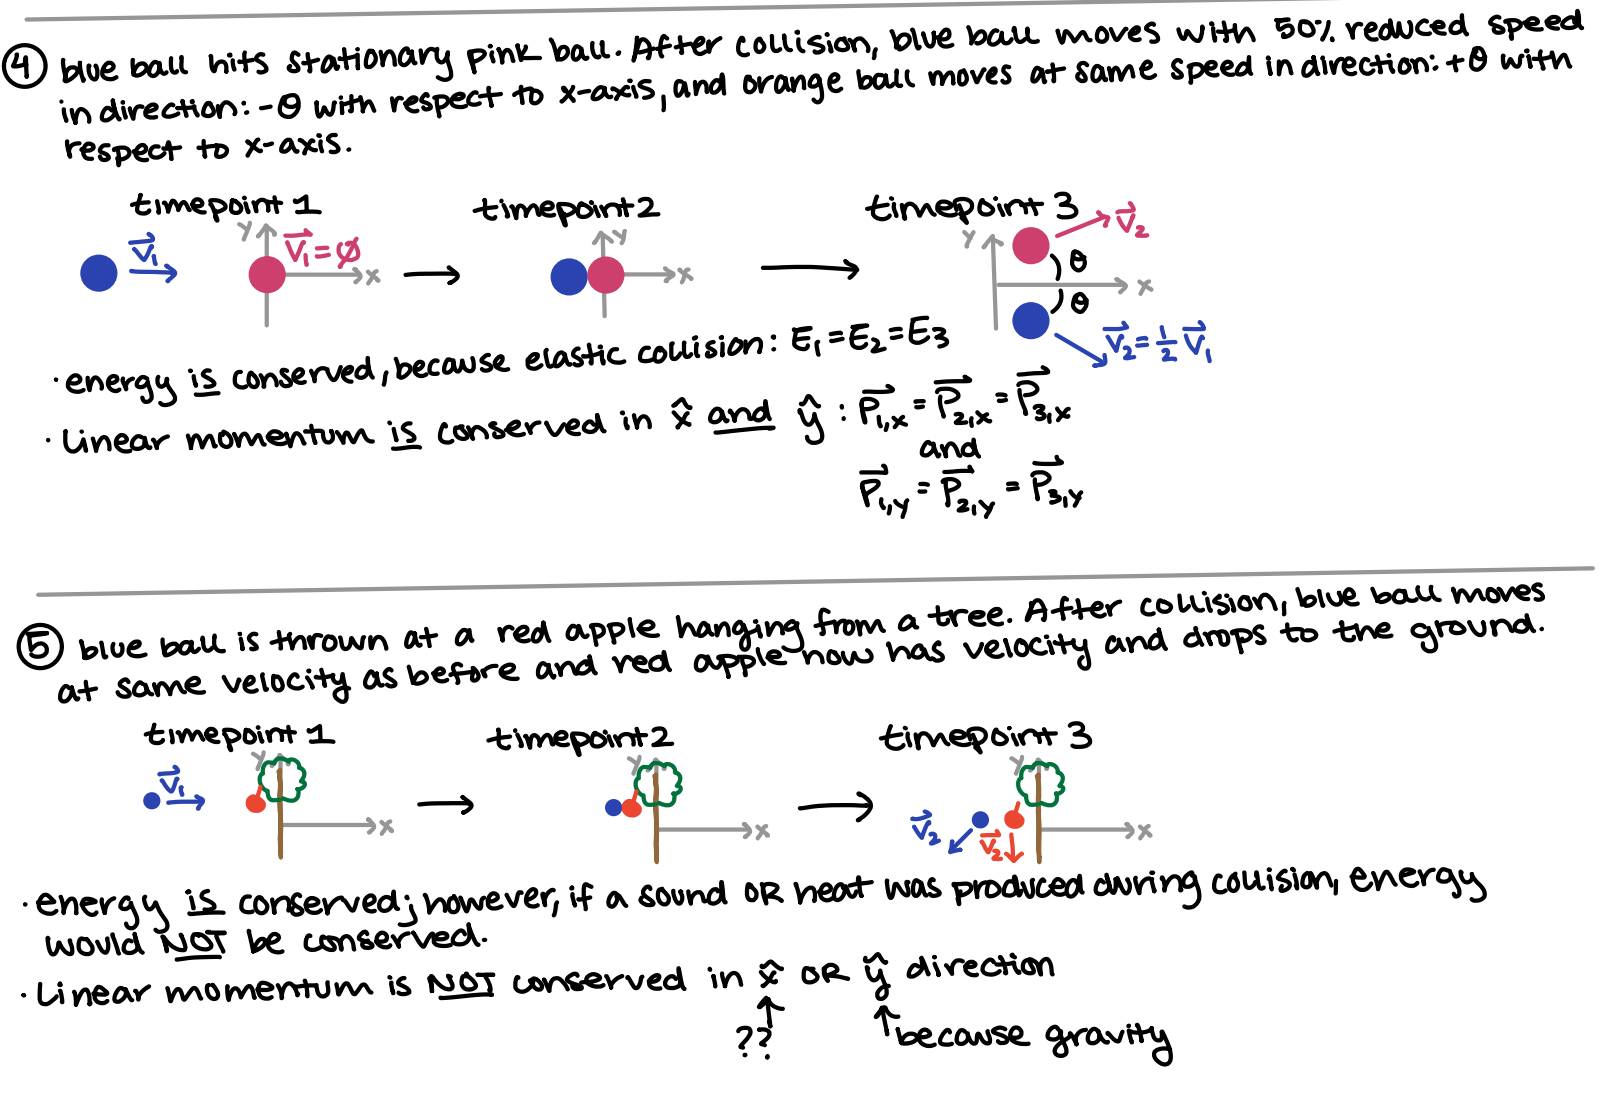 ④ blue ball hits stationary pink ball. After collision, blue ball moves with 50% reduced speed
in direction: -θ with respect to x-axis, and orange ball moves at same speed in direction: +θ with
respect to x-axis.
timepoint 1 timepoint 2 timepoint 3
V⃗₁ y V⃗₁ = ∅ x y x y V⃗₂ θ θ x V⃗₂ = ½ V⃗₁
· energy is conserved, because elastic collision: E₁ = E₂ = E₃
· Linear momentum is conserved in x̂ and ŷ : P⃗₁,ₓ = P⃗₂,ₓ = P⃗₃,ₓ
and
P⃗₁,y = P⃗₂,y = P⃗₃,y
⑤ blue ball is thrown at a red apple hanging from a tree. After collision, blue ball moves
at same velocity as before and red apple now has velocity and drops to the ground.
timepoint 1 timepoint 2 timepoint 3
V⃗₁ y x y x y V⃗₂ V⃗₂ x
· energy is conserved; however, if a sound OR heat was produced during collision, energy
would NOT be conserved.
· Linear momentum is NOT conserved in x̂ OR ŷ direction
?? because gravity